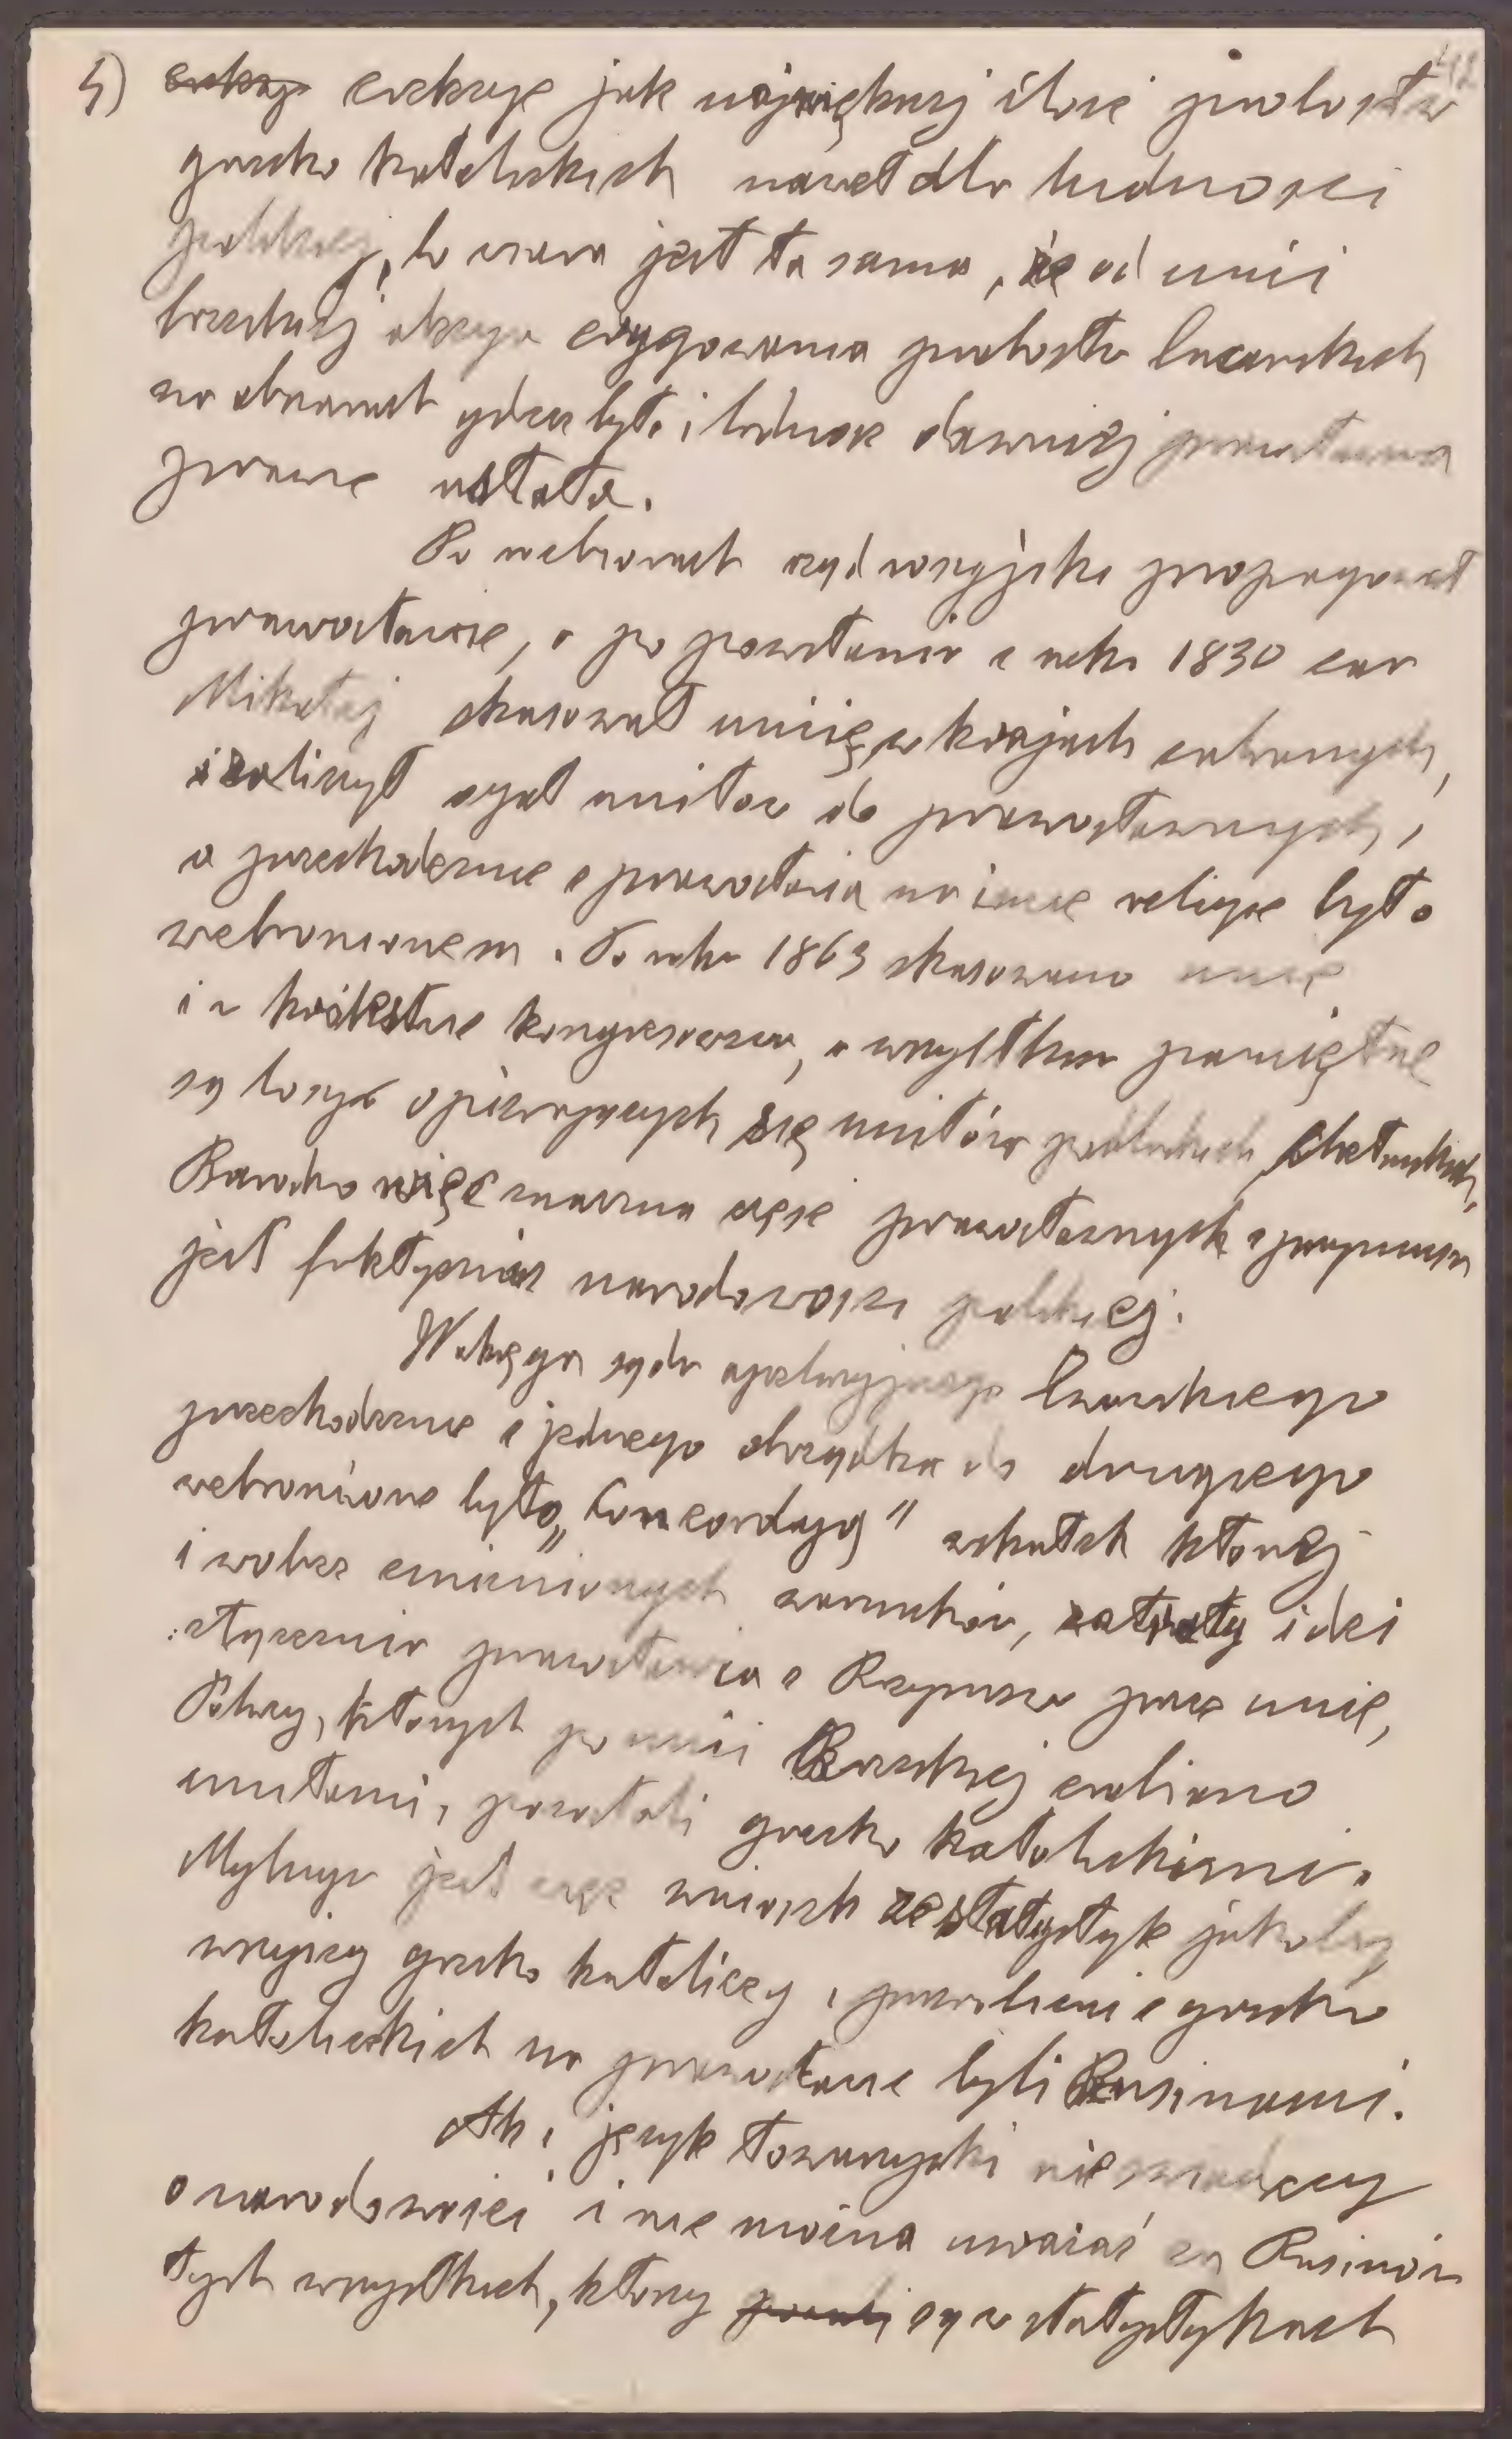 5) erekcye jak największej ilości probostw
grecko katolickich nawet dla ludności
polskiej, to znowu jest ta sama, że od unii
brzeskiej akcya erygowania probostw łacińskich
na obszarach gdzie było i ludność dawniej prawosławna
prawie ustała.
Po rozbiorach rząd rosyjski propagował
prawosławie, a po powstaniu z roku 1830 car
Mikołaj skasował unię w krajach zabranych,
i zaliczył ogół unitów do prawosławnych,
a przechodzenie z prawosławia na inne religie było
zabronionem. Po roku 1863 skasowano unię
i w królestwie kongresowem, a wszystkim pamiętne
są losy opierających się unitów podlaskich, chełmskich,
Bardzo więc znaczna część prawosławnych z przymusu
jest faktycznie narodowości polskiej.
W okręgu sądu apelacyjnego lwowskiego
przechodzenie z jednego obrządku do drugiego
zabronione było „Concordyą" wskutek której
i wobec zmienionych warunków, zatraty idei
złączenia prawosławia z Rzymem przez unię,
Polacy, których po unii Brzeskiej zrobiono
unitami, pozostali grecko katolickimi.
Mylnym jest więc wniosek ze statystyk jakoby
wszyscy grecko katolicy i przerobieni z grecko
katolickich na prawosławie byli Rusinami.
Ale i język towarzyski nie świadczy
o narodowości i nie można uważać za Rusinów
tych wszystkich, którzy są w statystykach